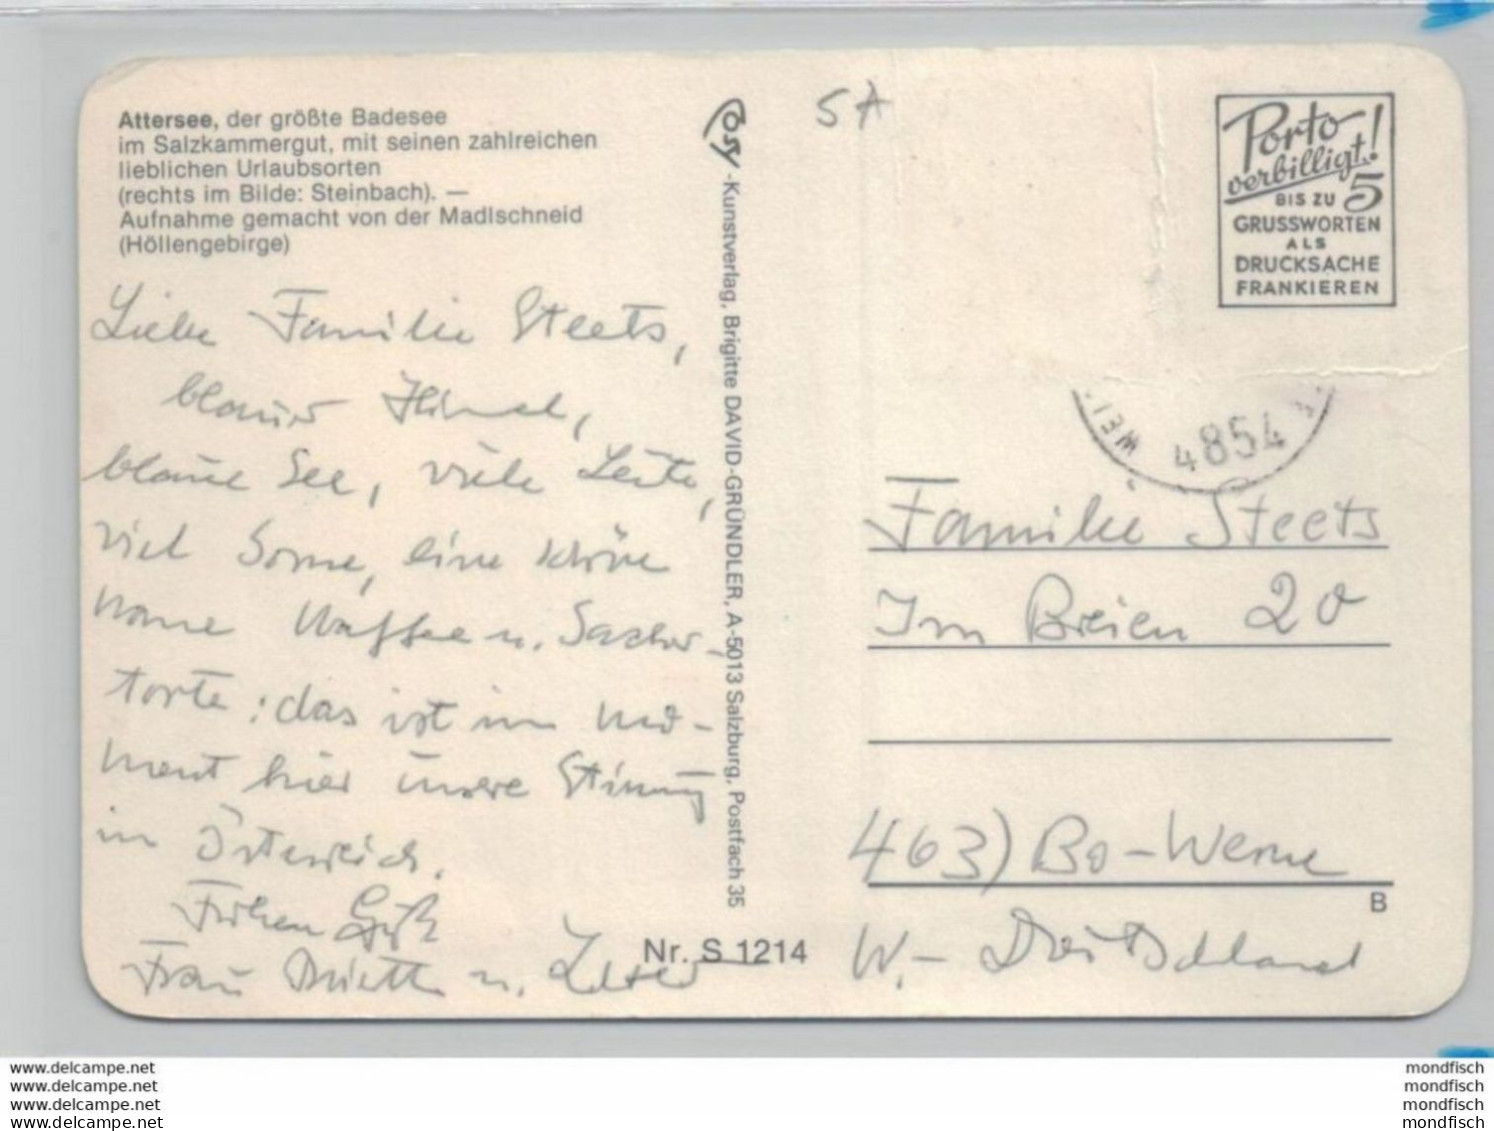 Attersee, der größte Badesee
im Salzkammergut, mit seinen zahlreichen
lieblichen Urlaubsorten
(rechts im Bilde: Steinbach). —
Aufnahme gemacht von der Madlschneid
(Höllengebirge)
Liebe Familie Steets,
blauer Himmel,
blaue See, viele Leute,
viel Sonne, eine schöne
Kaffee u. Sacher-
torte: das ist im Mo-
ment hier unsere Stimmung
in Österreich.
Frohen Gruß
Frau u.
Cosy-Kunstverlag, Brigitte DAVID-GRÜNDLER, A-5013 Salzburg, Postfach 35
Nr. S 1214
57
Porto
verbilligt!
BIS ZU 5
GRUSSWORTEN
ALS
DRUCKSACHE
FRANKIEREN
4854
Familie Steets
Im Breien 20
463) Bo-Werne
B
W.- Deutschland
www.delcampe.net
www.delcampe.net
www.delcampe.net
www.delcampe.net
mondfisch
mondfisch
mondfisch
mondfisch